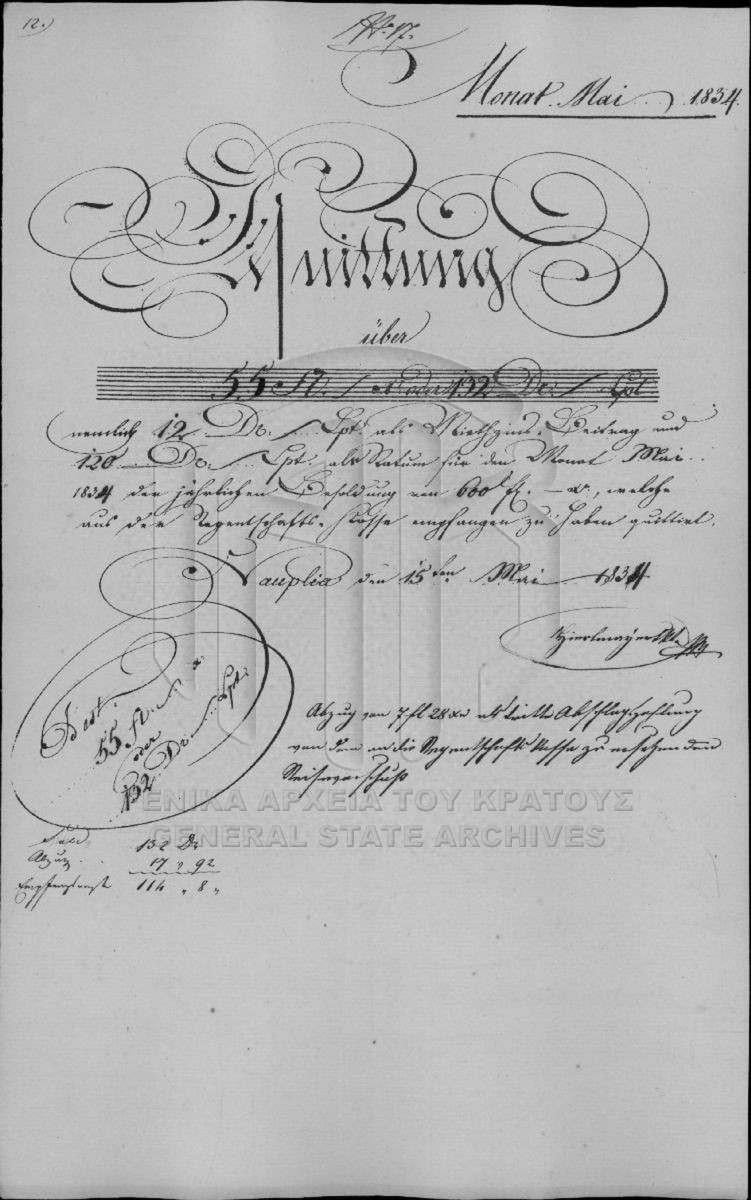 12.)
No. 17.
Monat Mai 1834.
Quittung
über
55 fl. – x oder 132 Dr. – Lpt
nemlich 12 Dr. – Lpt. als Miethzins-Beitrag und
120 Dr. – Lpt. als Ratum für den Monat Mai
1834 der jährlichen Besoldung von 600 fl. – x., welche
aus der Regentschafts-Kasse empfangen zu haben quittirt.
Nauplia den 15ten Mai 1834
Hierlmayer
Abzug von 7 fl 28 xr als dritte Abschlagszahlung
von dem an die Regentschafts Kasse zu ersetzenden
Reisevorschuß
Sist.
55 fl. – x
oder
132 Dr. – Lpt.
132 Dr
Abzug 17 " 92
114 " 8 "
ΓΕΝΙΚΑ ΑΡΧΕΙΑ ΤΟΥ ΚΡΑΤΟΥΣ
GENERAL STATE ARCHIVES